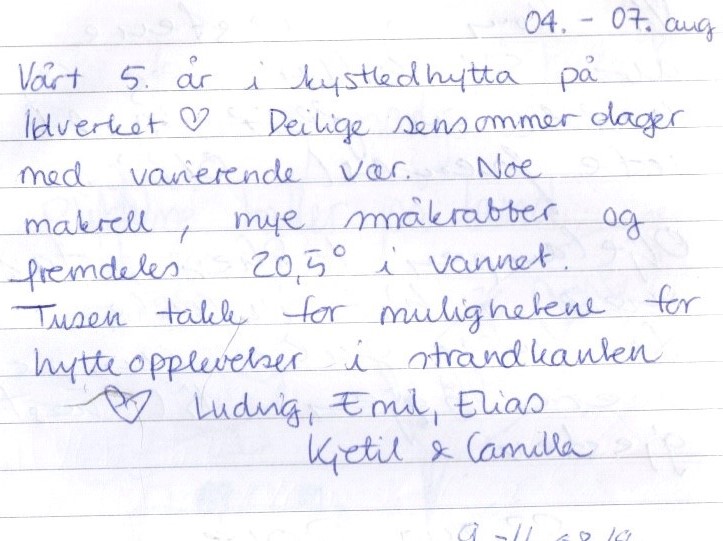 04. - 07. aug
Vårt 5. år i kystledhytta på
Ildverket ♡ Deilige sensommerdager
med varierende vær. Noe
makrell, mye småkrabber og
fremdeles 20,5° i vannet.
Tusen takk for mulighetene for
hytteopplevelser i strandkanten
♡ Ludvig, Emil, Elias
Kjetil & Camilla